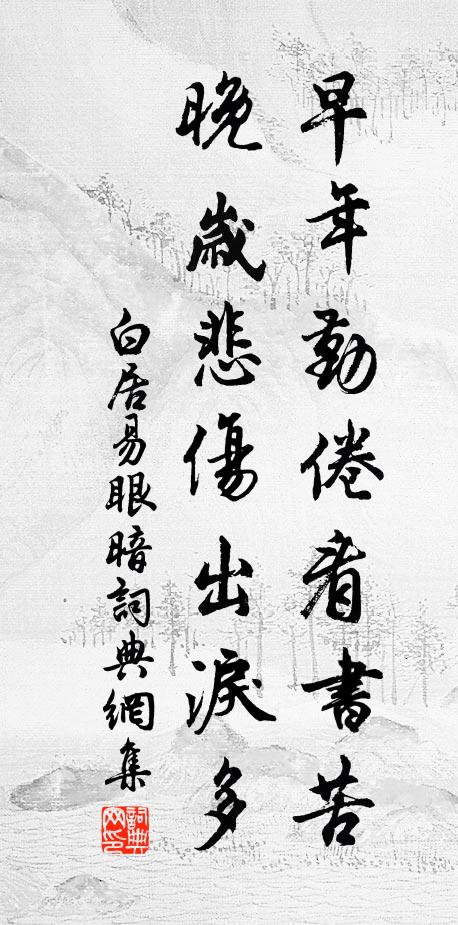 早年勤倦看書苦
晚歲悲傷出淚多
白居易眼暗詞典網集
詞典网印